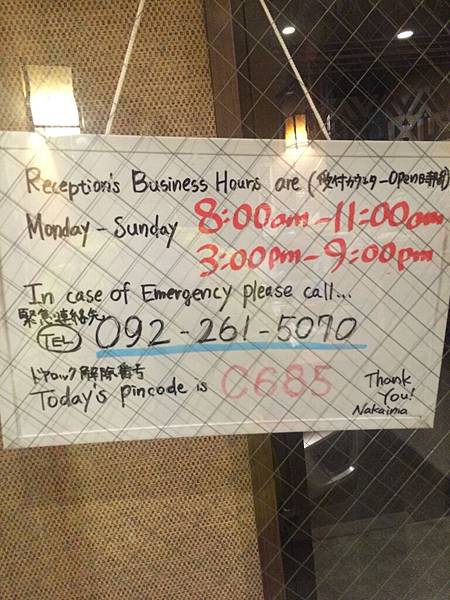 Reception's Business Hours are (受付カウンターOpen時間)
Monday - Sunday 8:00am-11:00am
3:00pm-9:00pm
In case of Emergency please call...
緊急連絡先
TEL 092-261-5070
ドアロック解除番号
Today's pincode is C685
Thank
You!
Nakaima